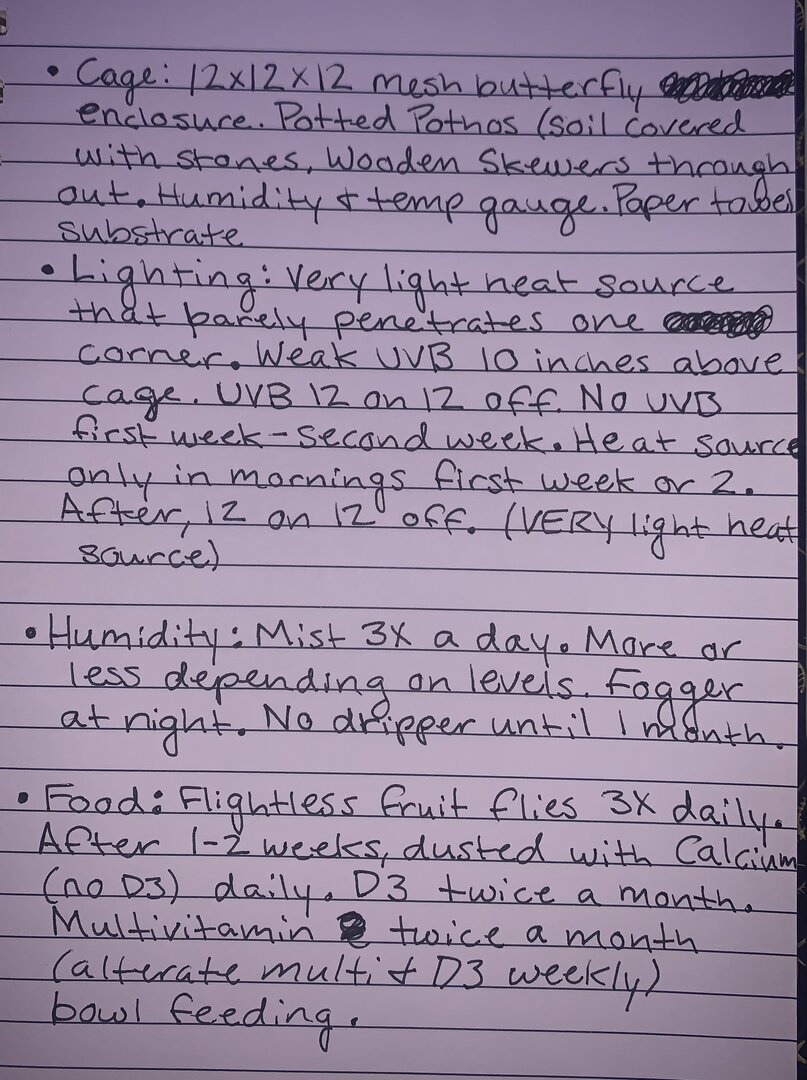 • Cage: 12x12x12 mesh butterfly
enclosure. Potted Pothos (soil covered
with stones, Wooden Skewers through
out. Humidity & temp gauge. Paper towel
substrate
• Lighting: Very light heat source
that barely penetrates one
corner. Weak UVB 10 inches above
cage. UVB 12 on 12 off. No UVB
first week-second week. Heat source
only in mornings first week or 2.
After, 12 on 12 off. (VERY light heat
source)
• Humidity: Mist 3X a day. More or
less depending on levels. Fogger
at night. No dripper until 1 month.
• Food: Flightless fruit flies 3X daily.
After 1-2 weeks, dusted with Calcium
(no D3) daily. D3 twice a month.
Multivitamin twice a month
(alterate multi & D3 weekly)
bowl feeding.